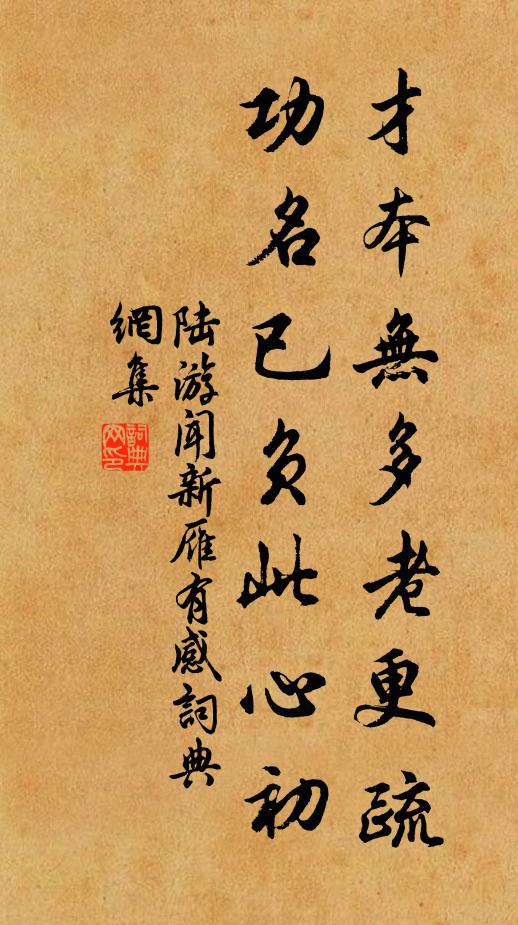 才本無多老更疏
功名已負此心初
陸游聞新雁有感詞典
網集
詞典
网印